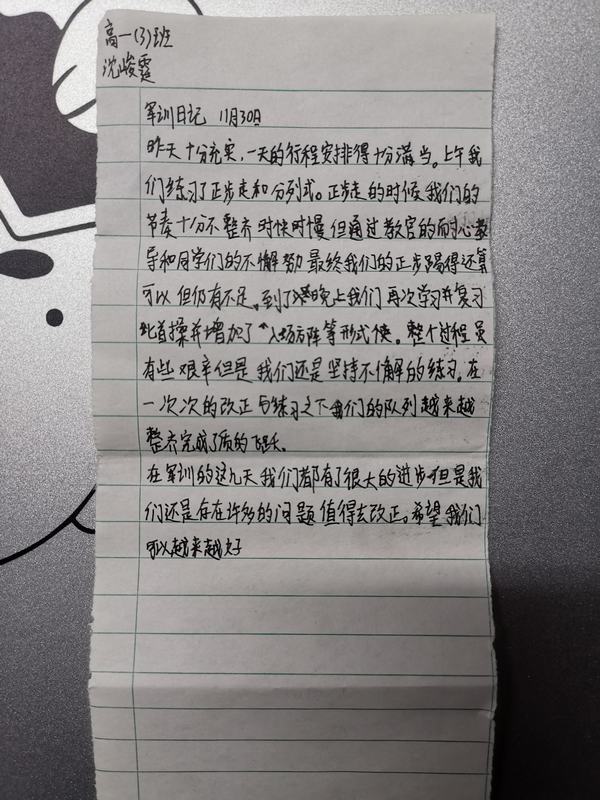 高一(3)班
沈峻霆
军训日记 11月30日
昨天十分充实,一天的行程安排得十分满当。上午我
们练习了正步走和分列式。正步走的时候我们的
节奏十分不整齐时快时慢但通过教官的耐心教
导和同学们的不懈努 最终我们的正步踢得还算
可以但仍有不足。到了晚上我们再次学习并复习
此首操并增加了“入场方阵等形式使。整个过程虽
有些艰辛但是我们还是坚持不懈的练习。在
一次次的改正与练习之下我们的队列越来越
整齐完成了质的飞跃。
在军训的这几天我们都有了很大的进步但是我
们还是存在许多的问题值得去改正。希望我们
可以越来越好